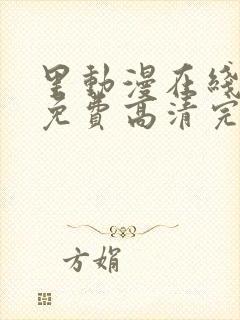 里動漫在綫
免費高清完
方娟